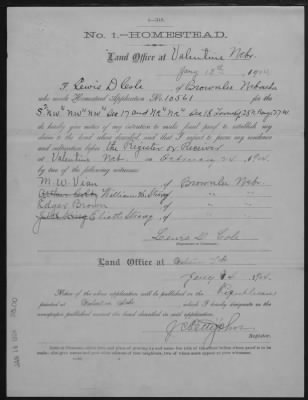 4-348.
No. 1.—HOMESTEAD.
Land Office at Valentine Nebr.
Jany 12th 1904
I, Lewis D Cole of Brownlee Nebraska
who made Homestead Application No. 10561 for the
do hereby give notice of my intention to make final proof to establish my
claim to the land above described, and that I expect to prove my residence
and cultivation before the Register or Receiver
at Valentine Neb. on February 24 1904.
by two of the following witnesses:
M. W. Vian of Brownlee Nebr.
William H. Steary of " "
Edgar Brown of " "
of " "
Lewis D. Cole
Land Office at
Jany 1904.
Notice of the above application will be published in the Republican
printed at Valentine Nebr which I hereby designate as the
newspaper published nearest the land described in said application.
J. C. Pettijohn
Register.